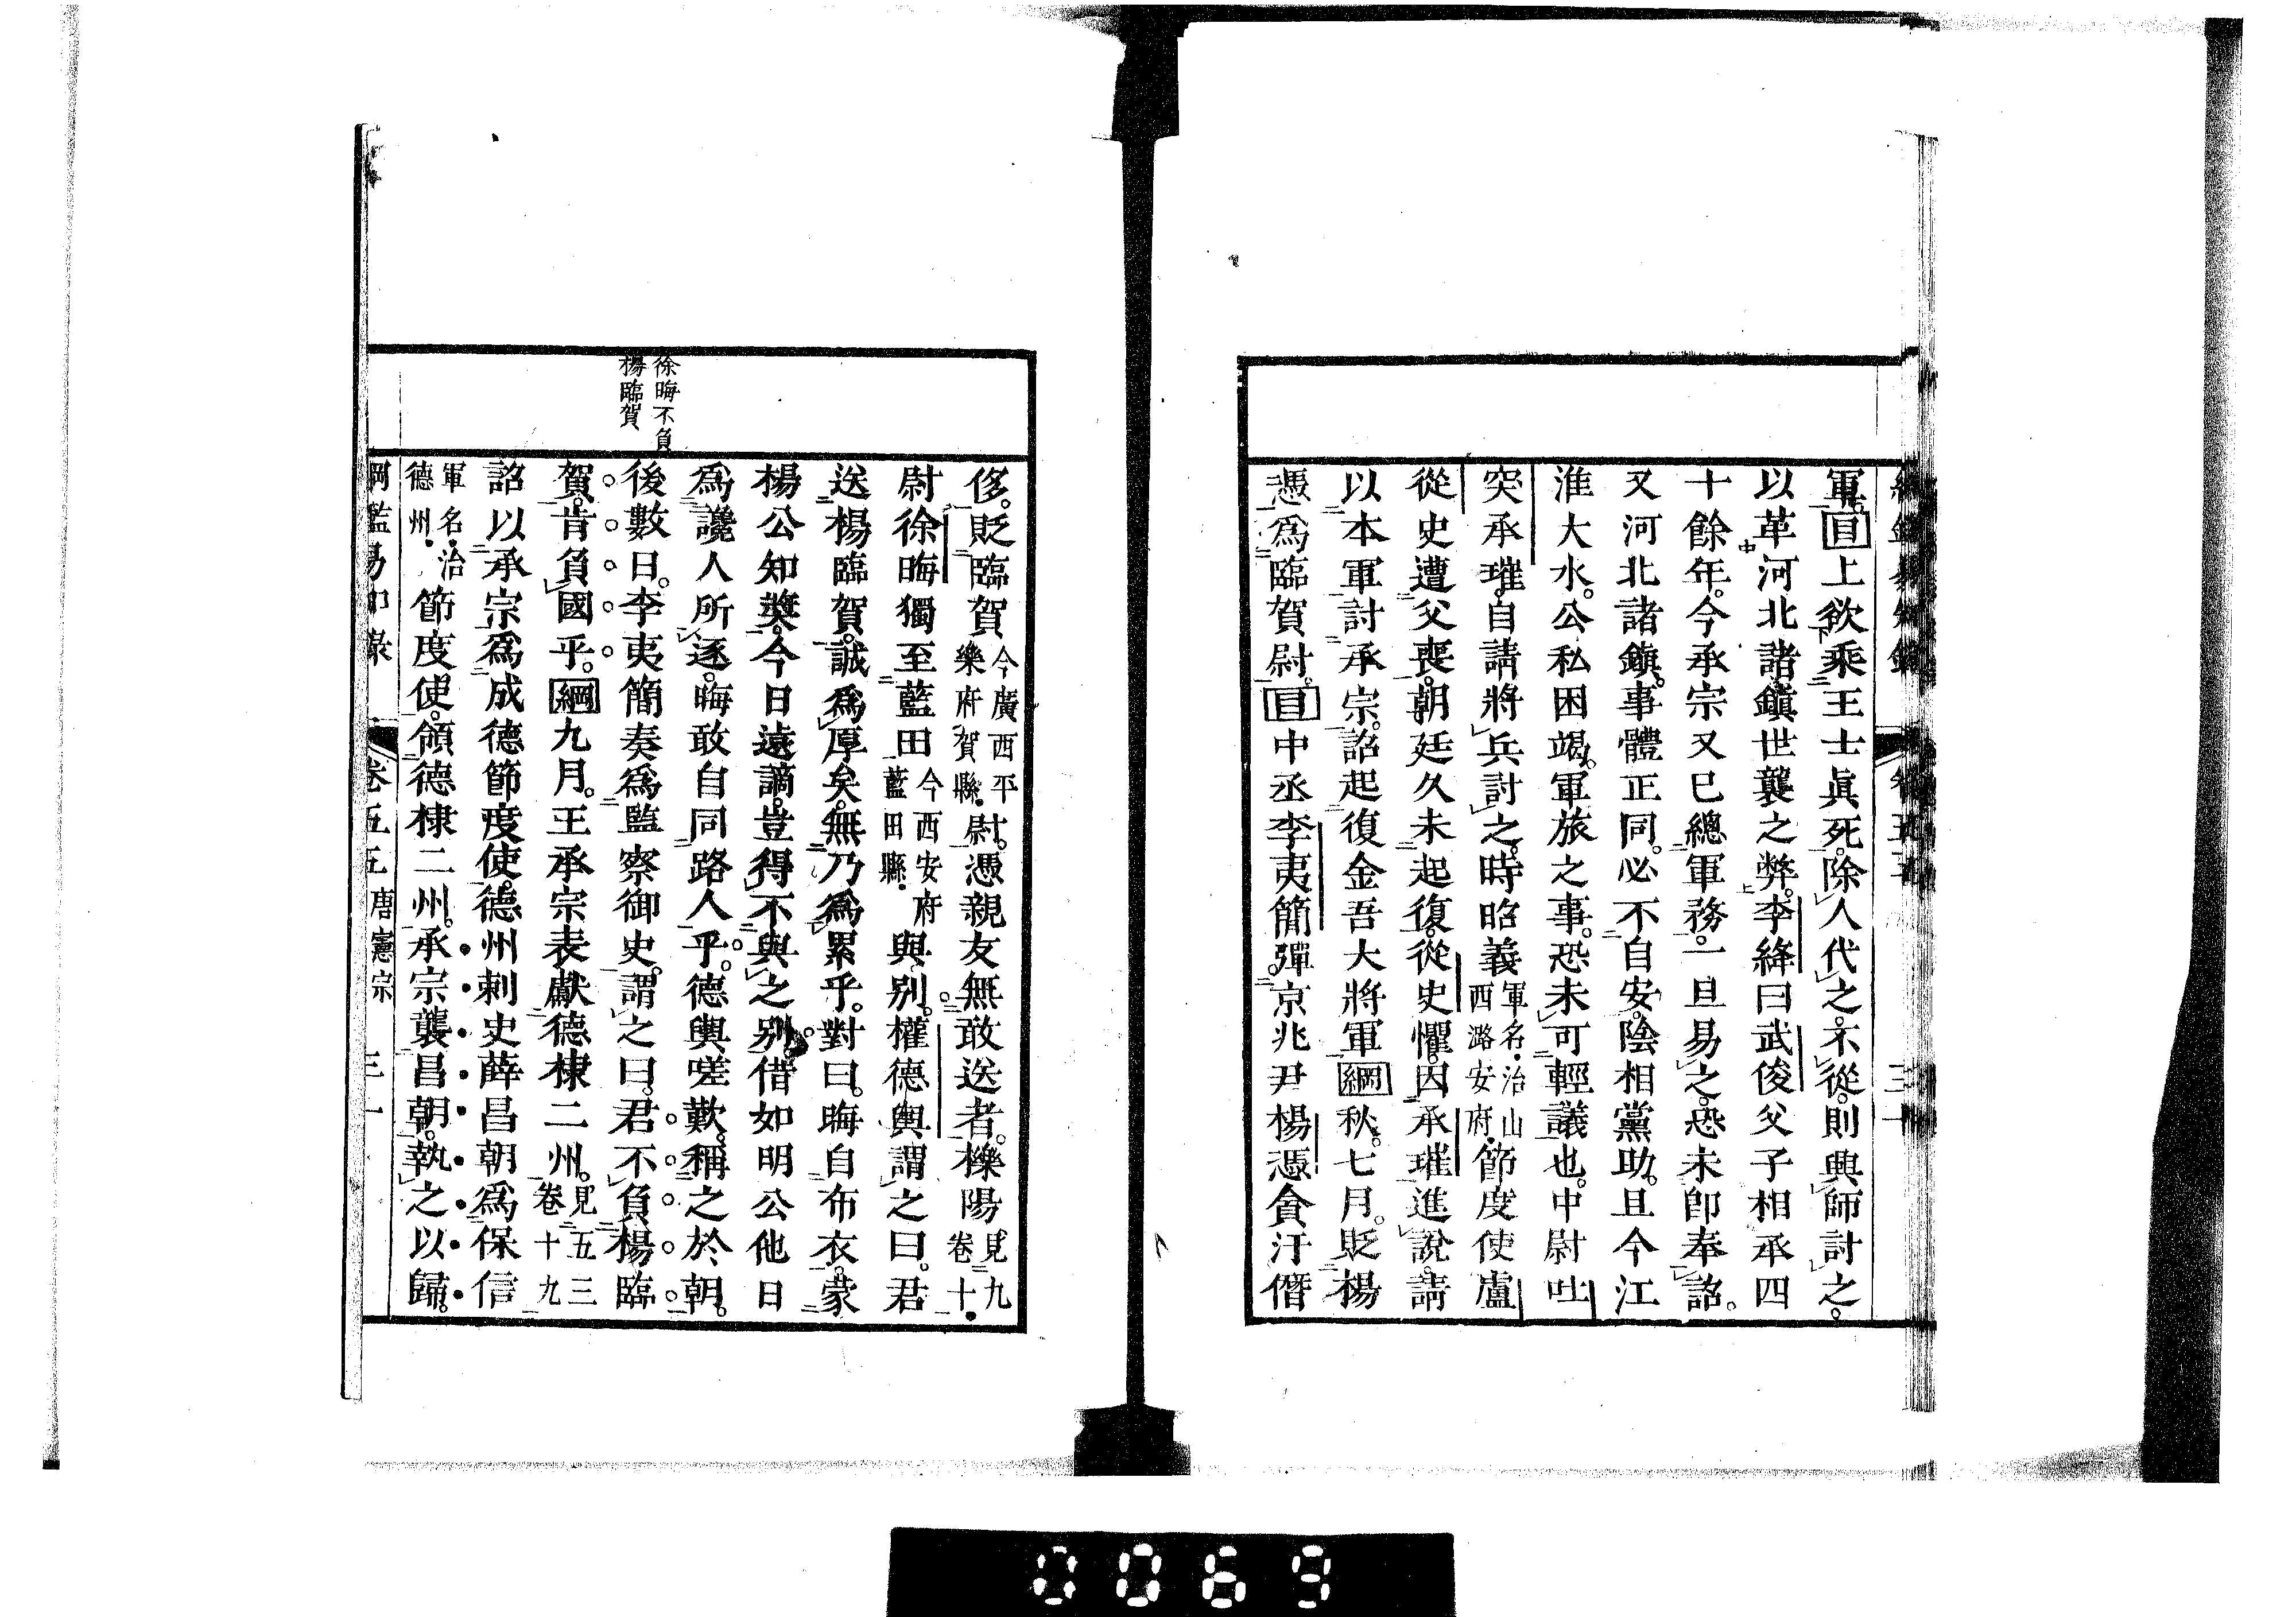 軍。目上欲乘王士眞死。除人代之。不從。則興師討之。
以革河北諸鎭世襲之弊。李絳曰武俊父子相承四
十餘年。今承宗又已總軍務。一旦易之。恐未卽奉詔。
又河北諸鎭。事體正同。必不自安。陰相黨助。且今江
淮大水。公私困竭。軍旅之事。恐未可輕議也。中尉吐
突承璀。自請將兵討之。時昭義軍名。治山西潞安府。節度使盧
從史遭父喪。朝廷久未起復。從史懼。因承璀進說。請
以本軍討承宗。詔起復金吾大將軍綱秋。七月。貶楊
憑爲臨賀尉。目中丞李夷簡。彈京兆尹楊憑貪汙僭
侈。貶臨賀今廣西平樂府賀縣。尉。憑親友無敢送者。櫟陽見九卷十。
尉徐晦獨至藍田今西安府藍田縣。與別。權德輿謂之曰。君
送楊臨賀。誠爲厚矣。無乃爲累乎。對曰。晦自布衣。蒙
楊公知奬。今日遠謫。豈得不與之別。借如明公他日
爲讒人所逐。晦敢自同路人乎。德輿嗟歎。稱之於朝。
徐晦不負
楊臨賀
後數日。李夷簡奏爲監察御史。謂之曰。君不負楊臨
賀。肯負國乎。綱九月。王承宗表獻德棣二州。見五三卷十九
詔以承宗爲成德節度使。德州刺史薛昌朝爲保信
軍名。治德州。節度使。領德棣二州。承宗襲昌朝。執之以歸。
綱鑑易知錄 卷五五 唐憲宗 三一
0069